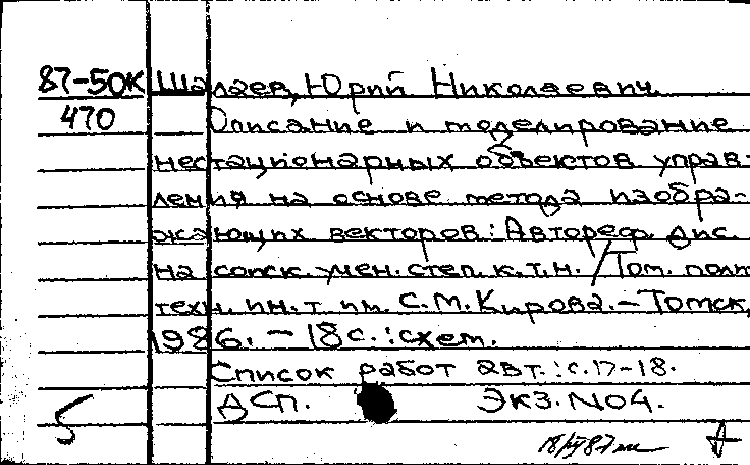 87-50К Шалаев, Юрий Николаевич
470 Описание и моделирование
нестационарных объектов управ-
ления на основе метода изобра-
жающих векторов: Автореф. дис.
на соиск. учен. степ. к.т.н. / Том. полит
техн. ин-т им. С.М. Кирова. - Томск,
1986. - 18 с. : схем.
Список работ авт.: с.17-18.
5 ДСП. Экз. №04.